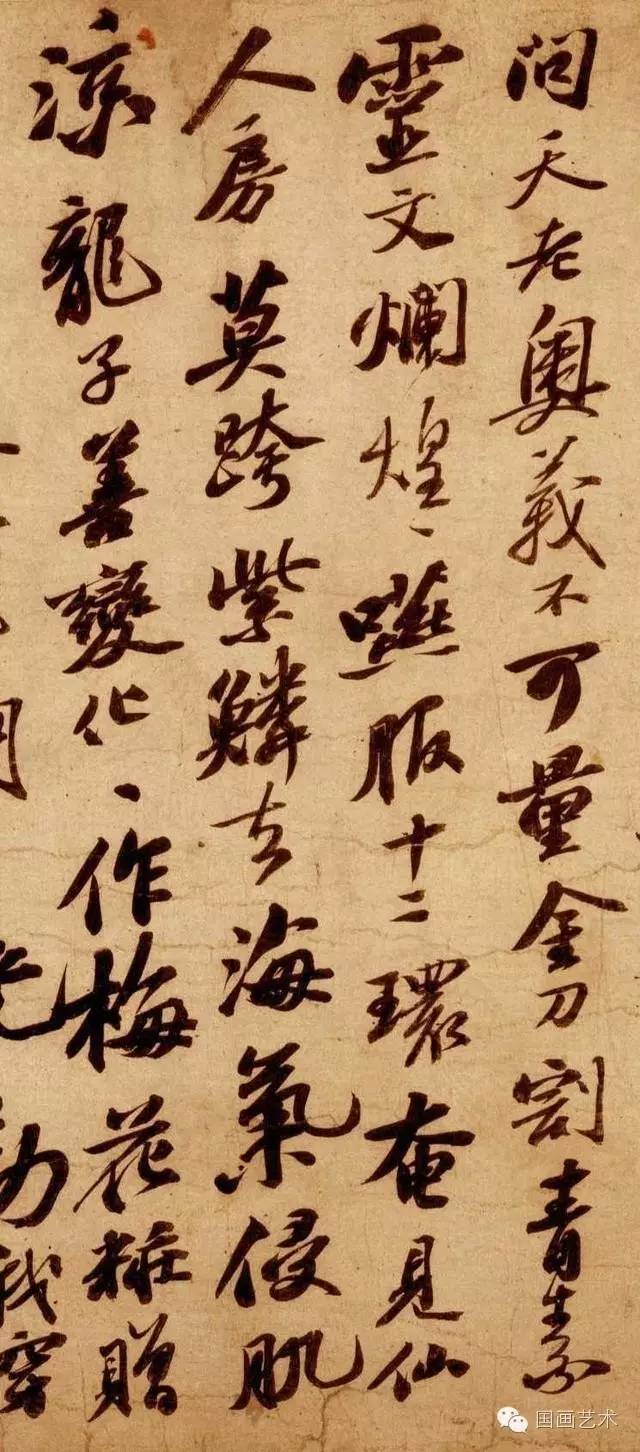 問天老奧義不可量金刀割青素
靈文爛煌〻嚥服十二環奄見仙
人房莫跨紫鱗去海氣侵肌
涼龍子善變化〻作梅花粧贈
我穿
国画艺术